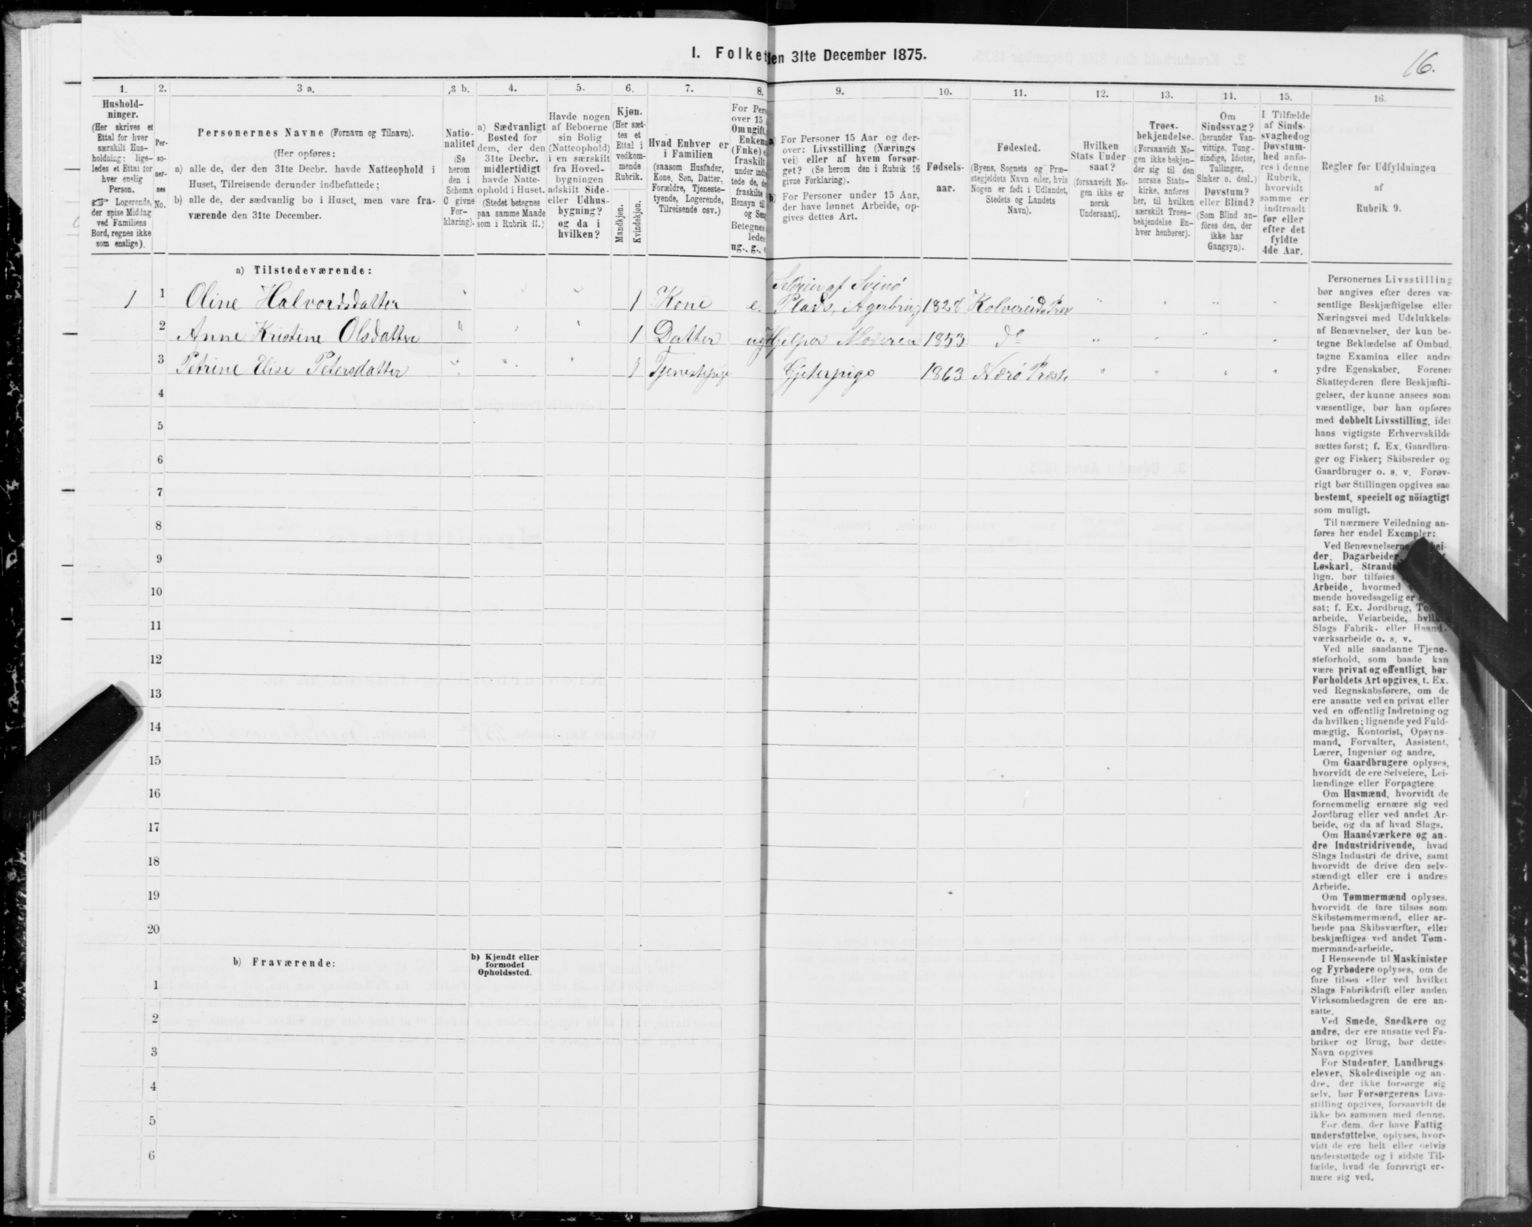 I. Folket den 31te December 1875.
16.
1. 2. 3 a. 3 b. 4. 5. 6. 7. 8. 9. 10. 11. 12. 13. 14. 15. 16.
Hushold-
ninger.
(Her skrives et
Ettal for hver
særskilt Hus-
holdning; lige-
ledes et Ettal for
hver enslig
Person.
☞ Logerende,
der spise Middag
ved Familiens
Bord, regnes ikke
som enslige).
Per-
so-
ner-
nes
No.
Personernes Navne (Fornavn og Tilnavn).
(Her opføres:
a) alle de, der den 31te Decbr. havde Natteophold i
Huset, Tilreisende derunder indbefattede;
b) alle de, der sædvanlig bo i Huset, men vare fra-
værende den 31te December.
Natio-
nalitet
(Se
herom
den i
Schema
C givne
For-
klaring).
a) Sædvanligt
Bosted for
dem, der den
31te Decbr.
midlertidigt
havde Natte-
ophold i Huset.
(Stedet betegnes
paa samme Maade
som i Rubrik 11.)
Havde nogen
af Beboerne
sin Bolig
(Natteophold)
i en særskilt
fra Hoved-
bygningen
adskilt Side-
eller Udhus-
bygning?
og da i
hvilken?
Kjøn.
(Her sæt-
tes et
Ettal i
vedkom-
mende
Rubrik.
Mandkjøn.
Kvindekjøn.
Hvad Enhver er
i Familien
(saasom Husfader,
Kone, Søn, Datter,
Forældre, Tjeneste-
tyende, Logerende,
Tilreisende osv.)
For Pers
over 15
Om ugift,
Enkem
(Enke) e
fraskilt
Betegnes
ledes
ug., g.,
For Personer 15 Aar og der-
over: Livsstilling (Nærings
vei) eller af hvem forsør-
get? (Se herom den i Rubrik 16
givne Forklaring).
For Personer under 15 Aar,
der have lønnet Arbeide, op-
gives dettes Art.
Fødsels-
aar.
Fødested.
(Byens, Sognets og Præ-
stegjeldets Navn eller, hvis
Nogen er født i Udlandet,
Stedets og Landets
Navn).
Hvilken
Stats Under
saat?
(forsaavidt No-
gen ikke er
norsk
Undersaat).
Troes-
bekjendelse.
(Forsaavidt No-
gen ikke bekjen-
der sig til den
norske Stats-
kirke, anføres
her, til hvilken
særskilt Troes-
bekjendelse En-
hver henhører).
Om
Sindssvag?
(herunder Van-
vittige, Tung-
sindige, Idioter,
Tullinger,
Sinker o. desl.)
Døvstum?
eller Blind?
(Som Blind an-
føres den, der
ikke har
Gangsyn).
I Tilfælde
af Sinds-
svaghed og
Døvstum-
hed anfø-
res i denne
Rubrik,
hvorvidt
samme er
indtraadt
før eller
efter det
fyldte
4de Aar.
Regler før Udfyldningen
af
Rubrik 9.
a) Tilstedeværende:
1 1 Oline Halvordsdatter 1 Kone e. Plads, 1828
2 Anne Kristine Olsdatter 1 Datter ug Hjelper Moderen 1853 do
3 Petrine Elise Petersdatter 1 Tjenestepige Gjeterpige 1863 Nærø Præst
4
5
6
7
8
9
10
11
12
13
14
15
16
17
18
19
20
b) Fraværende:
b) Kjendt eller
formodet
Opholdssted.
1
2
3
4
5
6
Personernes Livsstilling
bør angives efter deres væ-
sentlige Beskjæftigelse eller
Næringsvei med Udelukkelse
af Benævnelser, der kun be-
tegne Beklædelse af Ombud,
tagne Examina eller andre
ydre Egenskaber. Forener
Skatteyderen flere Beskjæfti-
gelser, der kunne ansees som
væsentlige, bør han opføres
med dobbelt Livsstilling, idet
hans vigtigste Erhvervskilde
sættes først; f. Ex. Gaardbru-
ger og Fisker; Skibsreder og
Gaardbruger o. s. v. Forøv-
rigt bør Stillingen opgives saa
bestemt, specielt og nöiagtigt
som muligt.
Til nærmere Veiledning an-
føres her endel Exempler:
Ved Benævnelserne
der, Dagarbeider,
Løskarl, Strand
lign. bør tilføies
Arbeide, hvormed
mende hovedsagelig er
sat; f. Ex. Jordbrug,
arbeide, Veiarbeide,
Slags Fabrik- eller Haand-
værksarbeide o. s. v.
Ved alle saadanne Tjene-
steforhold, som baade kan
være privat og offentligt, bør
Forholdets Art opgives, t. Ex.
ved Regnskabsførere, om de
ere ansatte ved en privat eller
ved en offentlig Indretning og
da hvilken; lignende ved Fuld-
mægtig, Kontorist, Opsyns-
mand, Forvalter, Assistent,
Lærer, Ingeniør og andre.
Om Gaardbrugere oplyses,
hvorvidt de ere Selveiere, Lei-
lændinge eller Forpagtere.
Om Husmænd, hvorvidt de
fornemmelig ernære sig ved
Jordbrug eller ved andet Ar-
beide, og da af hvad Slags.
Om Haandværkere og an-
dre Industridrivende, hvad
Slags Industri de drive, samt
hvorvidt de drive den selv-
stændigt eller ere i andres
Arbeide.
Om Tømmermænd oplyses,
hvorvidt de fare tilsøs som
Skibstømmermænd, eller ar-
beide paa Skibsværfter, eller
beskjæftiges ved andet Tøm-
mermandsarbeide.
I Henseende til Maskinister
og Fyrbødere oplyses, om de
fare tilsøs eller ved hvilket
Slags Fabrikdrift eller anden
Virksomhedsgren de ere an-
satte.
Ved Smede, Snedkere og
andre, der ere ansatte ved Fa-
briker og Brug, bør dettes
Navn opgives
For Studenter, Landbrugs-
elever, Skoledisciple og an-
dre, der ikke forsørge sig
selv, bør Forsørgerens Livs-
stilling opgives, forsaavidt de
ikke bo sammen med denne.
For dem, der have Fattig-
understøttelse, oplyses, hvor-
vidt de ere helt eller delvis
understøttede og i sidste Til-
fælde, hvad de forøvrigt er-
nære sig ved.